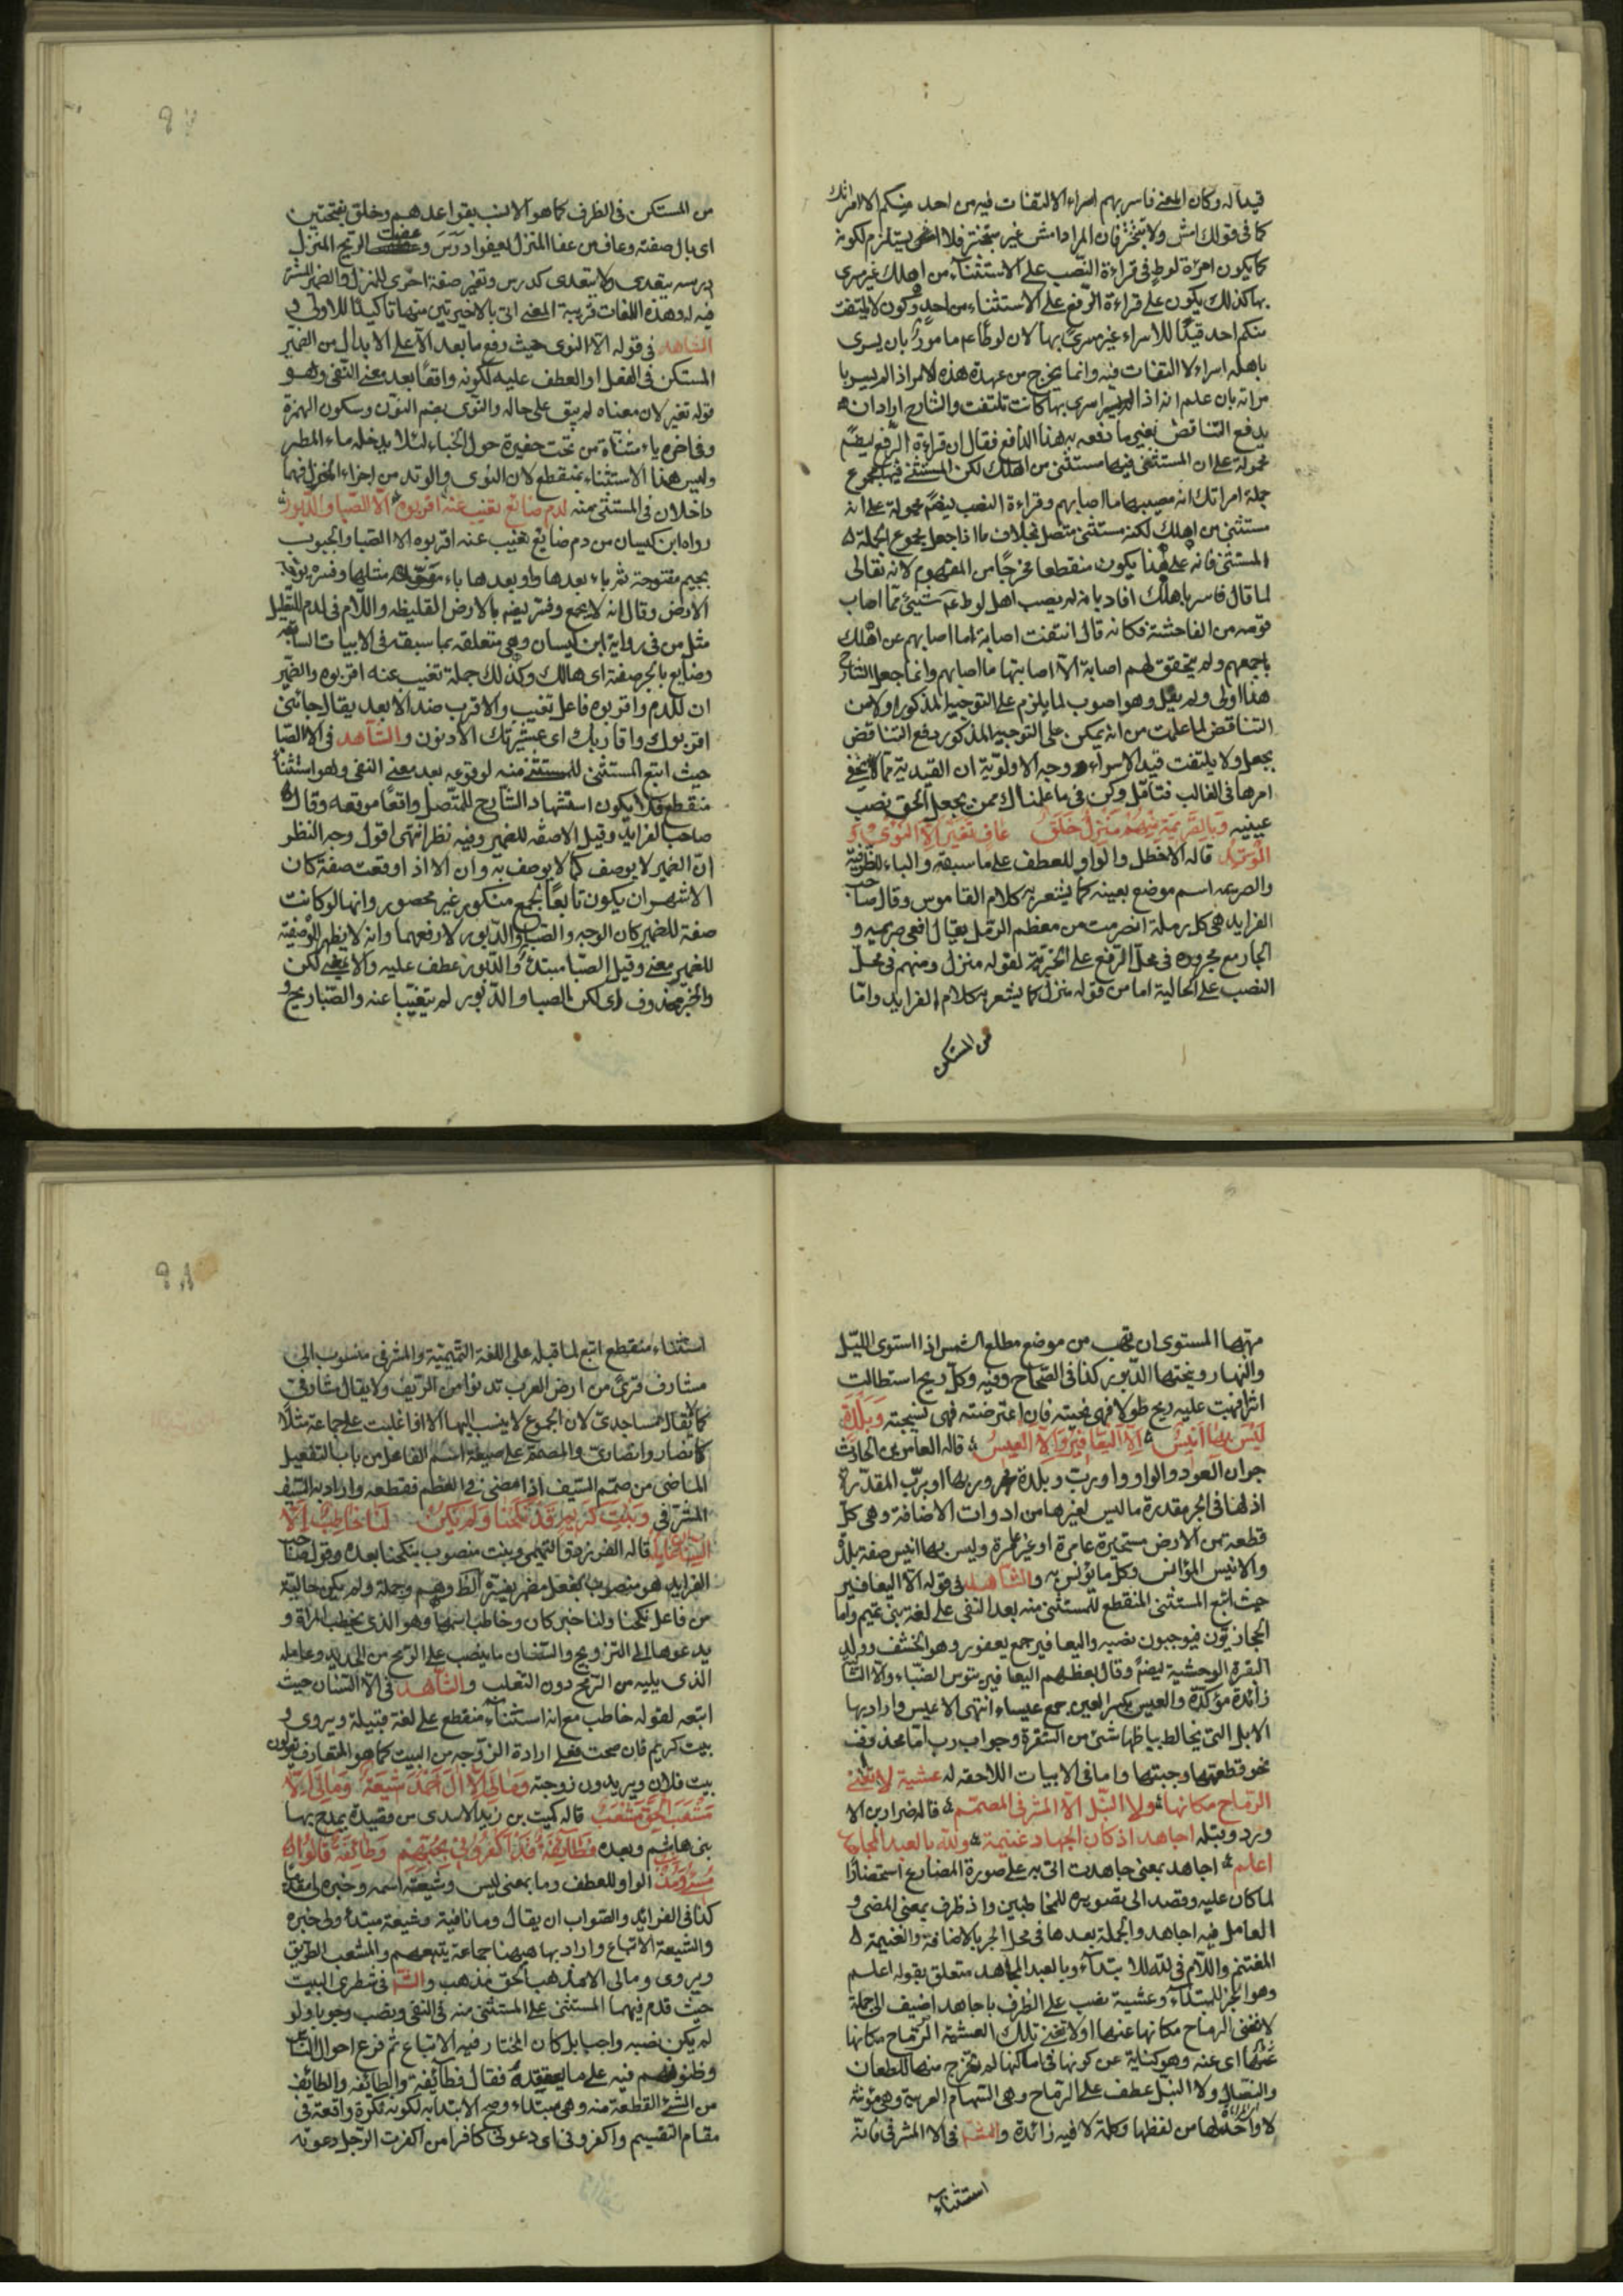 قيدا له وكان المعنى فاسر بهم اسراء لا التفات فيه من احد منكم الا امراتك
كما في قولك امش ولا تتبختر فان المراد امش غير متبختر فلا يستلزم لكونه
كما يكون امرأة لوط في قراءة النصب على الاستثناء من اهلك غير مسرى
بها كذلك يكون على قراءة الرفع على الاستثناء من احد وكون لا يلتفت
منكم احد قيدا للاسراء غير مسرى بها لان لوطا عم مامور بان يسرى
باهله اسراء لا التفات فيه وانما يخرج من عهدة هذه الامر اذا لم يسر با
مراته بان علم انه اذا اسرى بها كانت تلتفت والشارح اراد ان
يدفع التناقض بغير ما دفعه به هذا الدافع فقال ان قراءة الرفع ايضا
محمولة على ان المستثنى فيها مستثنى من اهلك لكن المستثنى فيها مجموع
جملة امراتك انه مصيبها ما اصابهم وقراءة النصب ايضا محمولة على انه
مستثنى من اهلك لكنه مستثنى متصل بخلاف ما اذا جعل مجموع الجملة
المستثنى فانه على هذا يكون منقطعا مخرجا من المفهوم لانه تعالى
لما قال فاسر باهلك افاد بانه لم يصب اهل لوط عم شيئ مما اصاب
قومه من الفاحشة فكانه قال انتفت اصابة ما اصابهم عن اهلك
باجمعهم ولم يتحقق لهم اصابة الا اصابتها ما اصابهم وانما جعل الشارح
هذا اولى ولم يقل وهو اصوب لما يلزم على التوجيه المذكور اولا من
التناقض لما علمت من انه يمكن على التوجيه المذكور دفع التناقض
بجعل ولا يلتفت قيد الاسراء ووجه الاولوية ان القيدية مما لا يخفى
امرها في الغالب فتامل وكن في ما علمناك ممن يجعل الحق نصب
عينيه وبالصريمة منهم منزل خلق عاف تغير الا النوى و
الوتد قاله الاخطل والواو للعطف على ما سبقه والباء للظرفية
والصريمة اسم موضع بعينه كما يشعر به كلام القاموس وقال صاحب
الفرايد هي كل رملة انصرمت من معظم الرمل يقال افعى صريمة و
الجار مع مجروره في محل الرفع على الخبرية لقوله منزل ومنهم في محل
النصب على الحالية اما من قوله منزل كما يشعر به كلام الفرايد واما
من المستكن
من المستكن في الظرف كما هو الانسب بقواعدهم وخلق بفتحتين
اى بال صفته وعاف من عفا المنزل يعفو اذا درس وعفت الريح المنزل
درسه يتعدى ولا يتعدى كدرس وتغير صفة اخرى للمنزل والضمير المستتر
فيه له وهذه اللغات قريبة المعنى اتى بالاخيرتين منها تاكيدا للاولى و
الشاهد في قوله الا النوى حيث رفع ما بعد الا على الابدال من الضمير
المستكن في الفعل او العطف عليه لكونه واقعا بعد معنى النفى وهو
قوله تغير لان معناه لم يبق على حاله والنوى بضم النون وسكون الهمزة
وفي اخره ياء مثناة من تحت حفيرة حول الخباء لئلا يدخله ماء المطر
وليس هذا الاستثناء بمنقطع لان النوى والوتد من اجزاء المنزل فهما
داخلان في المستثنى منه لدم ضائع تغيب عنه اقربوه الا الصبا والدبور
رواه ابن كيسان من دم ضايع تغيب عنه اقربوه الا الصبا والجبوب
بجيم مفتوحة ثم باء بعدها واو بعدها باء مثلها وفسره بوجه
الارض وقال انه لا يجمع وفسر ايضه بالارض الغليظه واللام في لدم للتعليل
مثل من في رواية ابن كيسان وهي متعلقه بما سبقه في الابيات السابقه
وضايع بالجر صفة اى هالك وكذلك جملة تغيب عنه اقربوه والضمير
ان للدم واقربوه فاعل تغيب والاقرب ضد الابعد يقال جائنى
اقربوك واقاربك اى عشيرتك الادنون والشاهد في الا الصبا
حيث اتبع المستثنى للمستثنى منه لوقوعه بعد معنى النفى وهو استثناء
منقطع فلا يكون استشهاد الشارح للمتصل واقعا موقعه وقال
صاحب الفرايد وقيل الا صفه للضمير وفيه نظر انتهى اقول وجه النظر
ان الضمير لا يوصف كما لا يوصف به وان الا اذا وقعت صفة كان
الاشهر ان يكون تابعا لجمع منكور غير محصور وانها لو كانت
صفة للضمير كان الوجه والصبا والدبور لا رفعهما وانه لا يظهر الوصفية
للضمير معنى وقيل الصبا مبتدأ والدبور عطف عليه والا بمعنى لكن
والخبر محذوف اى لكن الصبا والدبور لم يتغيبا عنه والصبا ريح و
مهبها المستوى ان تهب من موضع مطلع الشمس اذا استوى الليل
والنهار ويختها الدبور كذا في الصحاح وفيه وكل ريح استطالت
اثرا فهبت عليه ريح طولا فهي نيحته فان اعترضته فهي نسيجته وبلدة
ليس بها انيس الا اليعافير والا العيس قاله العامر بن الحارث
جران العود والواو واو رب وبلدة مجرور بها او برب المقدرة
اذ لها في الجر مقدرة ما ليس لغيرها من ادوات الاضافة وهي كل
قطعة من الارض مستحيزة عامرة او غير عامرة وليس بها انيس صفة بلدة
والانيس المؤانس وكل ما يؤنس به والشاهد في قوله الا اليعافير
حيث اتبع المستثنى المنقطع للمستثنى منه بعد النفى على لغة بنى تميم واما
الحجازيون فيوجبون نصبه واليعافير جمع يعفور وهو الخشف وولد
البقرة الوحشية ايضا وقال بعضهم اليعافير تيوس الضباء والا الثانية
زائدة مؤكدة والعيس بكسر العين جمع عيساء انثى الاعيس واراد بها
الابل التى يخالط بياضها شئ من الشقرة وجواب رب اما محذوف
نحو قطعتها وجبتها واما في الابيات اللاحقه له عشية لا تغنى
الرماح مكانها ولا النبل الا المشرفي المصمم قاله ضرار بن الا
زور وقبله اجاهد اذ كان الجهاد غنيمة ولله بالعبد المجاهد
اعلم اجاهد بمعنى جاهدت اتى به على صورة المضارع استحضارا
لما كان عليه وقصد الى تصويره للمخاطبين واذ ظرف بمعنى المضى و
العامل فيه اجاهد والجملة بعدها في محل الجر بالاضافة والغنيمة
المغتنم واللام في لله للابتداء وبالعبد المجاهد متعلق بقوله اعلم
وهو الخبر للمبتداء وعشية نصب على الظرف باجاهد اضيف الى جملة
لا تغنى الرماح مكانها عنها اولا تغنى تلك العشية الرماح مكانها
عنها اى عنه وهو كناية عن كونها في اماكنها لم تخرج منها للطعان
والنضال ولا النبل عطف على الرماح وهي السهام العربية وهي مؤنثة
لا واحد لها من لفظها وكلمة لا فيه زائدة والشاهد في الا المشرفي فانه
استثناء
استثناء منقطع اتبع لما قبله على اللغة التميمية والمشرفي منسوب الى
مشارف قرى من ارض العرب تدنوا من الريف ولا يقال مشارفي
كما لا يقال مساجدى لان الجموع لا ينسب اليها الا اذا غلبت على جماعة مثلا
كانصار وانصارى والمصمم على صيغة اسم الفاعل من باب التفعيل
الماضى من صمم السيف اذا مضى في العظم فقطعه واراد به السيف
المشرفي وبنت كريم قد نكحنا ولم يكن لنا خاطب الا
السنان وعامله قاله الفرزدق التميمى وبنت منصوب بنكحنا بعده وقول صاحب
الفرايد هو منصوب بفعل مضمر يفسره الظ وهم وجملة ولم يكن حالية
من فاعل نكحنا ولنا خبر كان وخاطب اسمها وهو الذى يخطب المراة و
يدعوها الى التزويج والسنان ما ينصب على الرمح من الحديد وعامله
الذى يليه من الرمح دون الثعلب والشاهد في الا السنان حيث
اتبعه لقوله خاطب مع انه استثناء منقطع على لغة قبيلة ويروى و
بيت كريم فان صحت فعلى ارادة الزوجه من البيت كما هو المتعارف يقولون
بيت فلان ويريدون زوجته ومالى الا ال احمد شيعة ومالى الا
مشعب الحق مشعب قاله كميت بن زيد الاسدى من قصيدة يمدح بها
بنى هاشم وبعده فطائفة قد اكفرونى بحبهم وطائفة قالوا
مسئ ومذنب الواو للعطف وما بمعنى ليس وشيعته اسمه وخبره لى مقدم
كذا في الفرايد والصواب ان يقال وما نافية وشيعة مبتداء ولى خبره
والشيعة الاتباع واراد بها هيهنا جماعة يتبعهم والمشعب الطريق
ويروى ومالى الا مذهب الحق مذهب والشاهد في شطرى البيت
حيث قدم فيهما المستثنى على المستثنى منه في النفى ونصب وجوبا ولو
لم يكن نصبه واجبا بل كان المختار فيه الاتباع ثم فرع احوال الناس
وظنونهم فيه على ما يعتقده فقال فطائفة والطائفه والطائف
من الشئ القطعة منه وهي مبتداء وصح الابتداء به لكونه نكرة واقعة في
مقام التقسيم واكفرونى اى دعونى كافرا من اكفرت الرجل دعوته